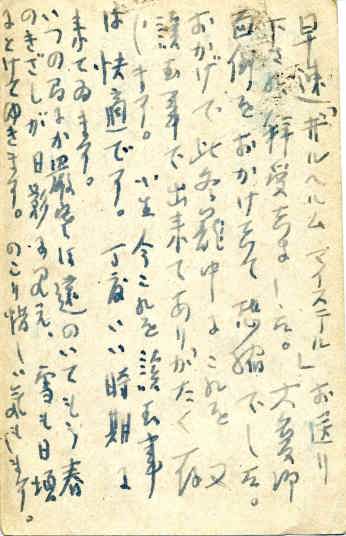 早速「ヰルヘルム マイステル」お送り
下され拝受しました。大変御
面倒をおかけして恐縮でした。
おかげで此冬籠中にこれを又
読む事が出来てありがたく存
じます。小生今これを読む事
は快適です。丁度いい時期に
来てゐます。
いつの間にか厳寒は遠のいてもう春
のきざしが日影に見え、雪も日増
にとけてゆきます。のこり惜しい気もします。